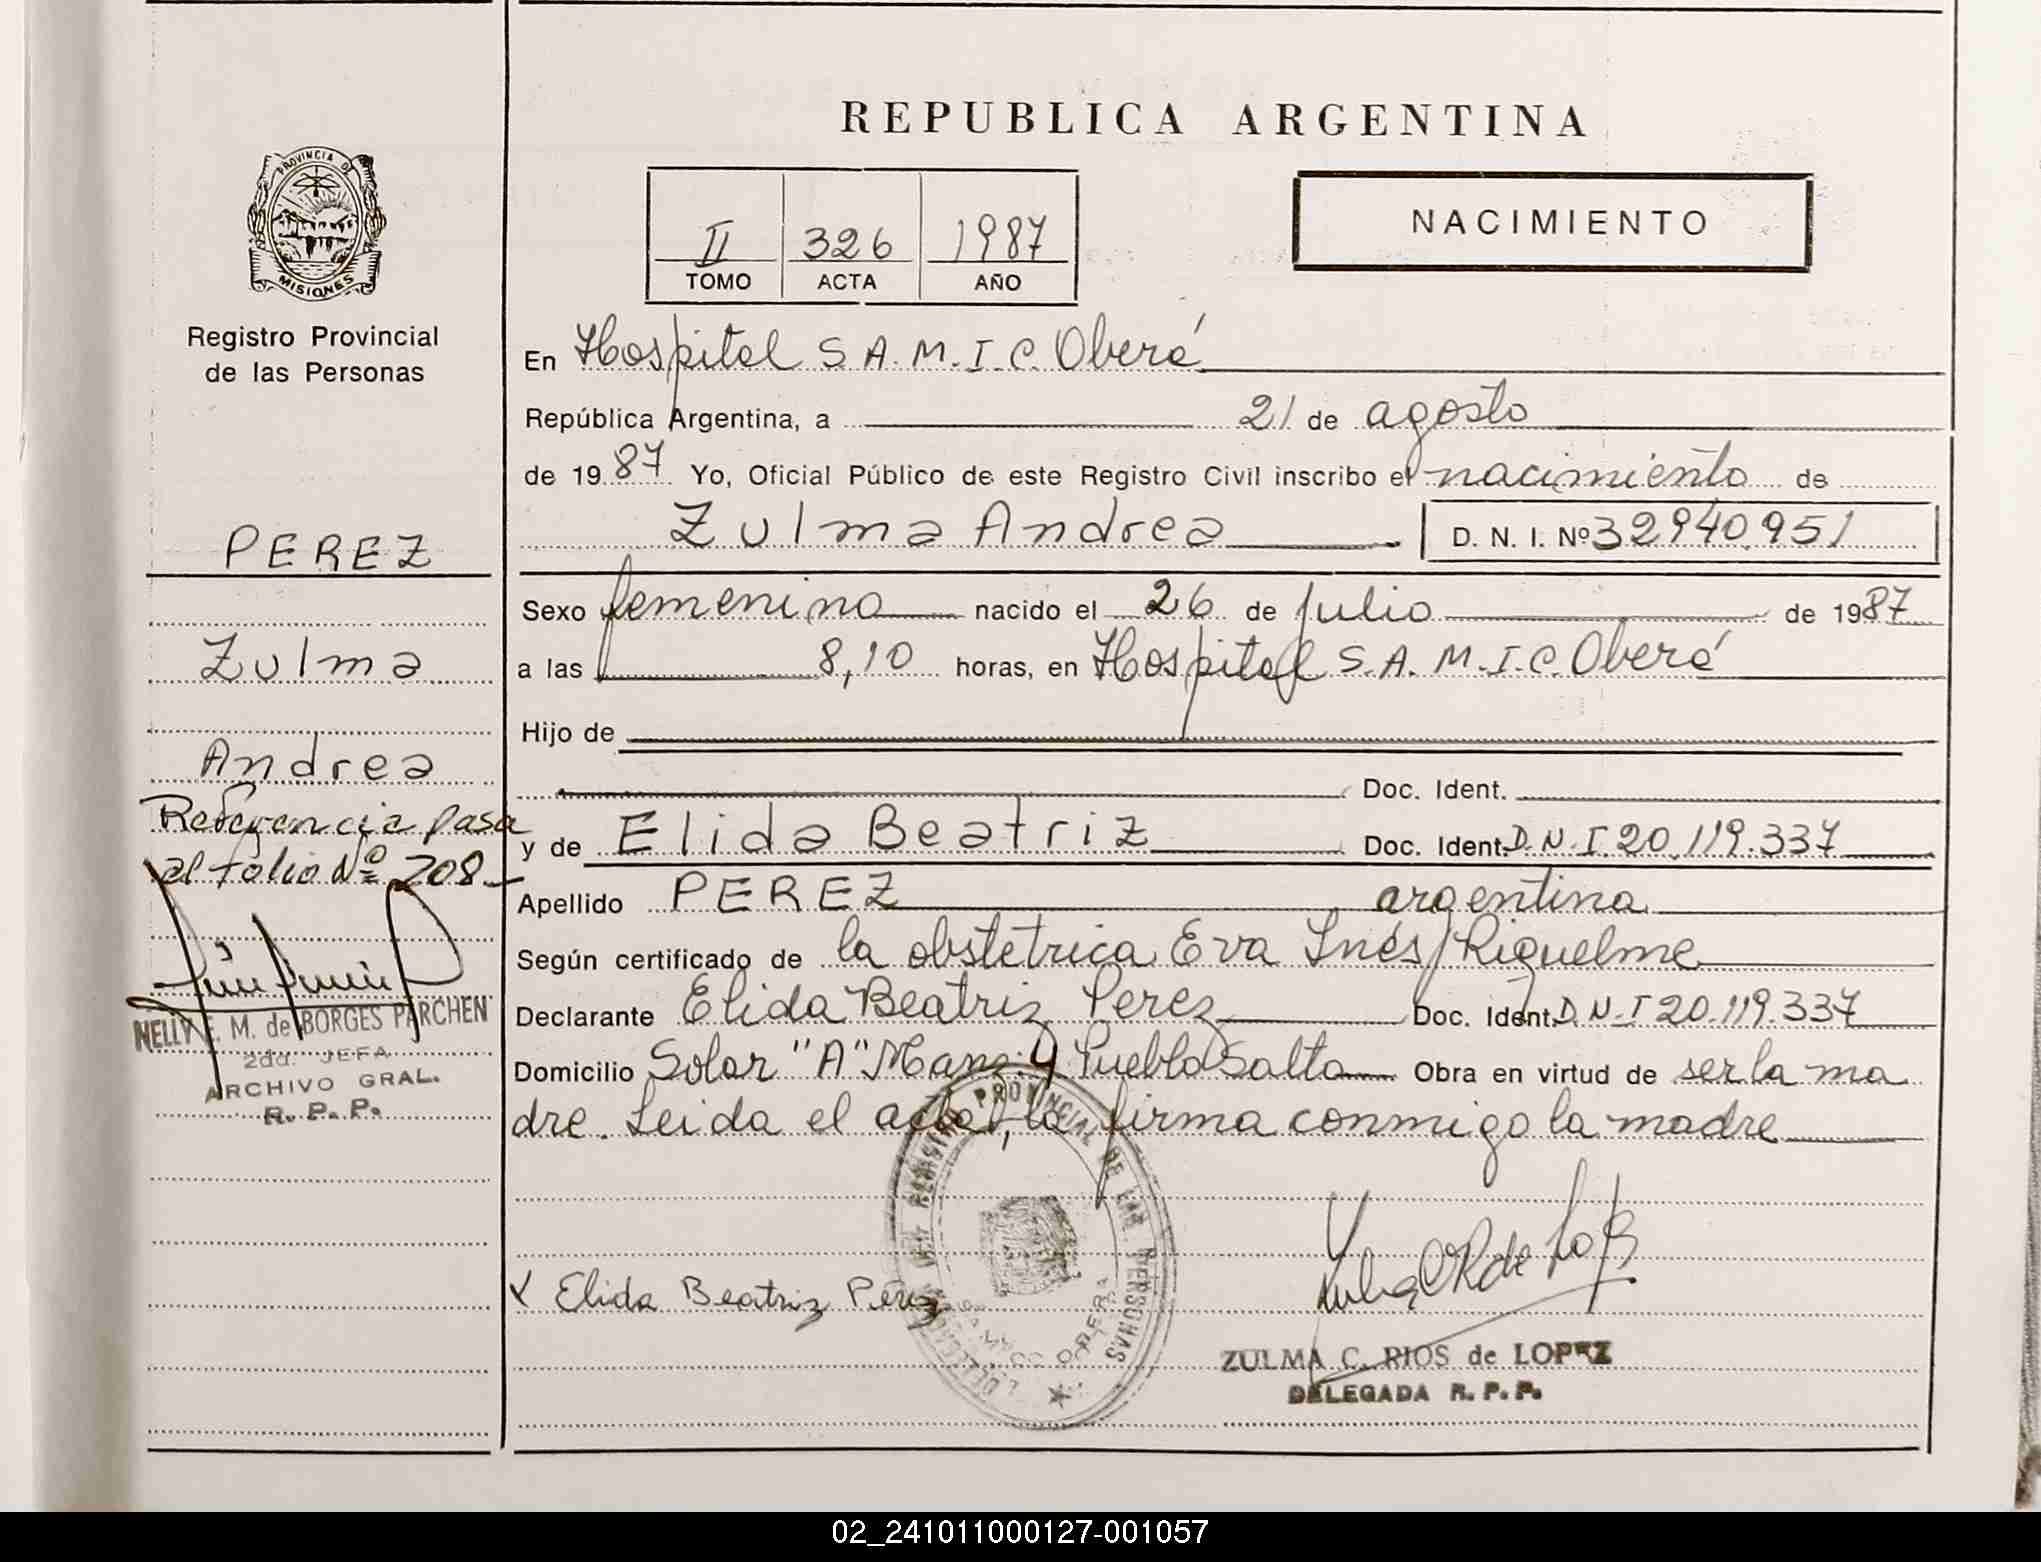 REPUBLICA ARGENTINA
PROVINCIA DE
MISIONES
Registro Provincial
de las Personas
II 326 1987
TOMO ACTA AÑO
NACIMIENTO
En Hospital S.A.M.I.C. Oberá
República Argentina, a 21 de agosto
de 1987 Yo, Oficial Público de este Registro Civil inscribo el nacimiento de
Zulma Andrea D. N. I. Nº 32940951
Sexo femenino nacido el 26 de julio de 1987
a las 8,10 horas, en Hospital S.A.M.I.C. Oberá
Hijo de
Doc. Ident.
y de Elida Beatriz Doc. Ident. D.N.I 20.119.337
Apellido PEREZ argentina
Según certificado de la obstetrica Eva Inés Riquelme
Declarante Elida Beatriz Perez Doc. Ident. D.N.I 20.119.337
Domicilio Solar "A" Manz. 9 Pueblo Salto Obra en virtud de ser la ma
dre. Leida el acta, la firma conmigo la madre
PEREZ
Zulma
Andrea
Referencia pasa
al folio Nº 208
NELLY E. M. de BORGES PARCHEN
2da. JEFA
ARCHIVO GRAL.
R. P. P.
x Elida Beatriz Pérez
PROVINCIAL DE LAS PERSONAS
ZULMA C. RIOS de LOPEZ
DELEGADA R. P. P.
02_241011000127-001057